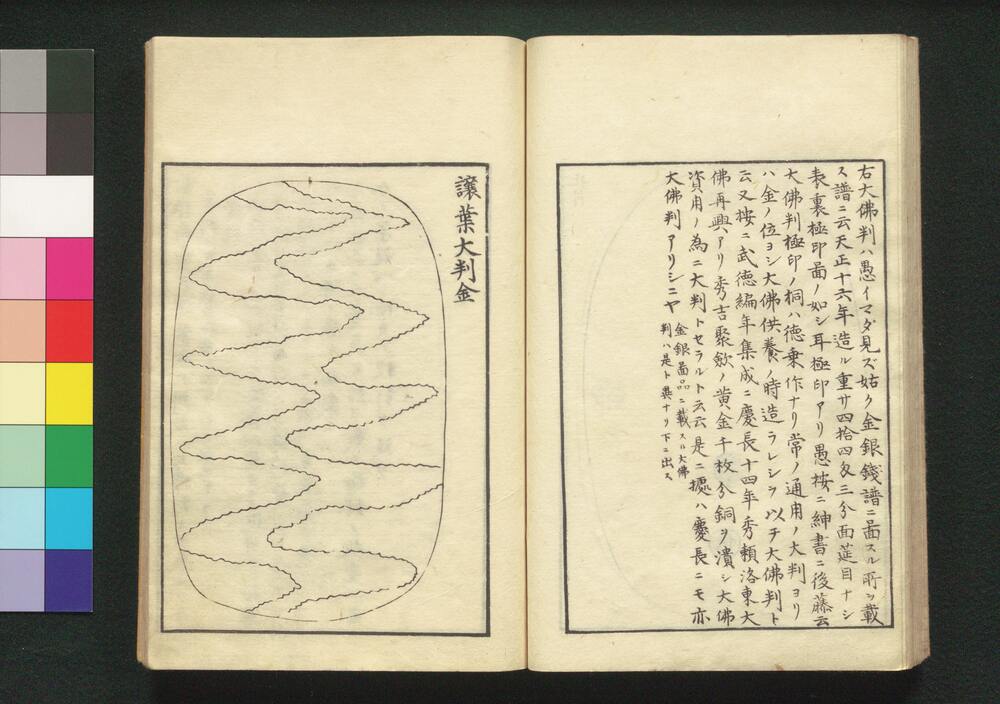 右大佛判ハ愚イマダ見ズ姑ク金銀錢譜ニ啚スル所ヲ載
ス譜ニ云天正十六年造ル重サ四拾四匁三分面莚目ナシ
表裏極印啚ノ如シ耳極印アリ愚按ニ紳書ニ後藤云
大佛判極印ノ桐ハ徳乗作ナリ常ノ通用ノ大判ヨリ
ハ金ノ位ヨシ大佛供養ノ時造ラレシヲ以テ大佛判ト
云又按ニ武徳編年集成ニ慶長十四年秀頼洛東大
佛再興アリ秀吉聚歛ノ黄金千枚分銅ヲ潰シ大佛
資用ノ為ニ大判トセラルト云云是ニ據ハ慶長ニモ亦
大佛判アリシニヤ
金銀啚品ニ載スル大佛
判ハ是ト異ナリ下ニ出ス
讓葉大判金